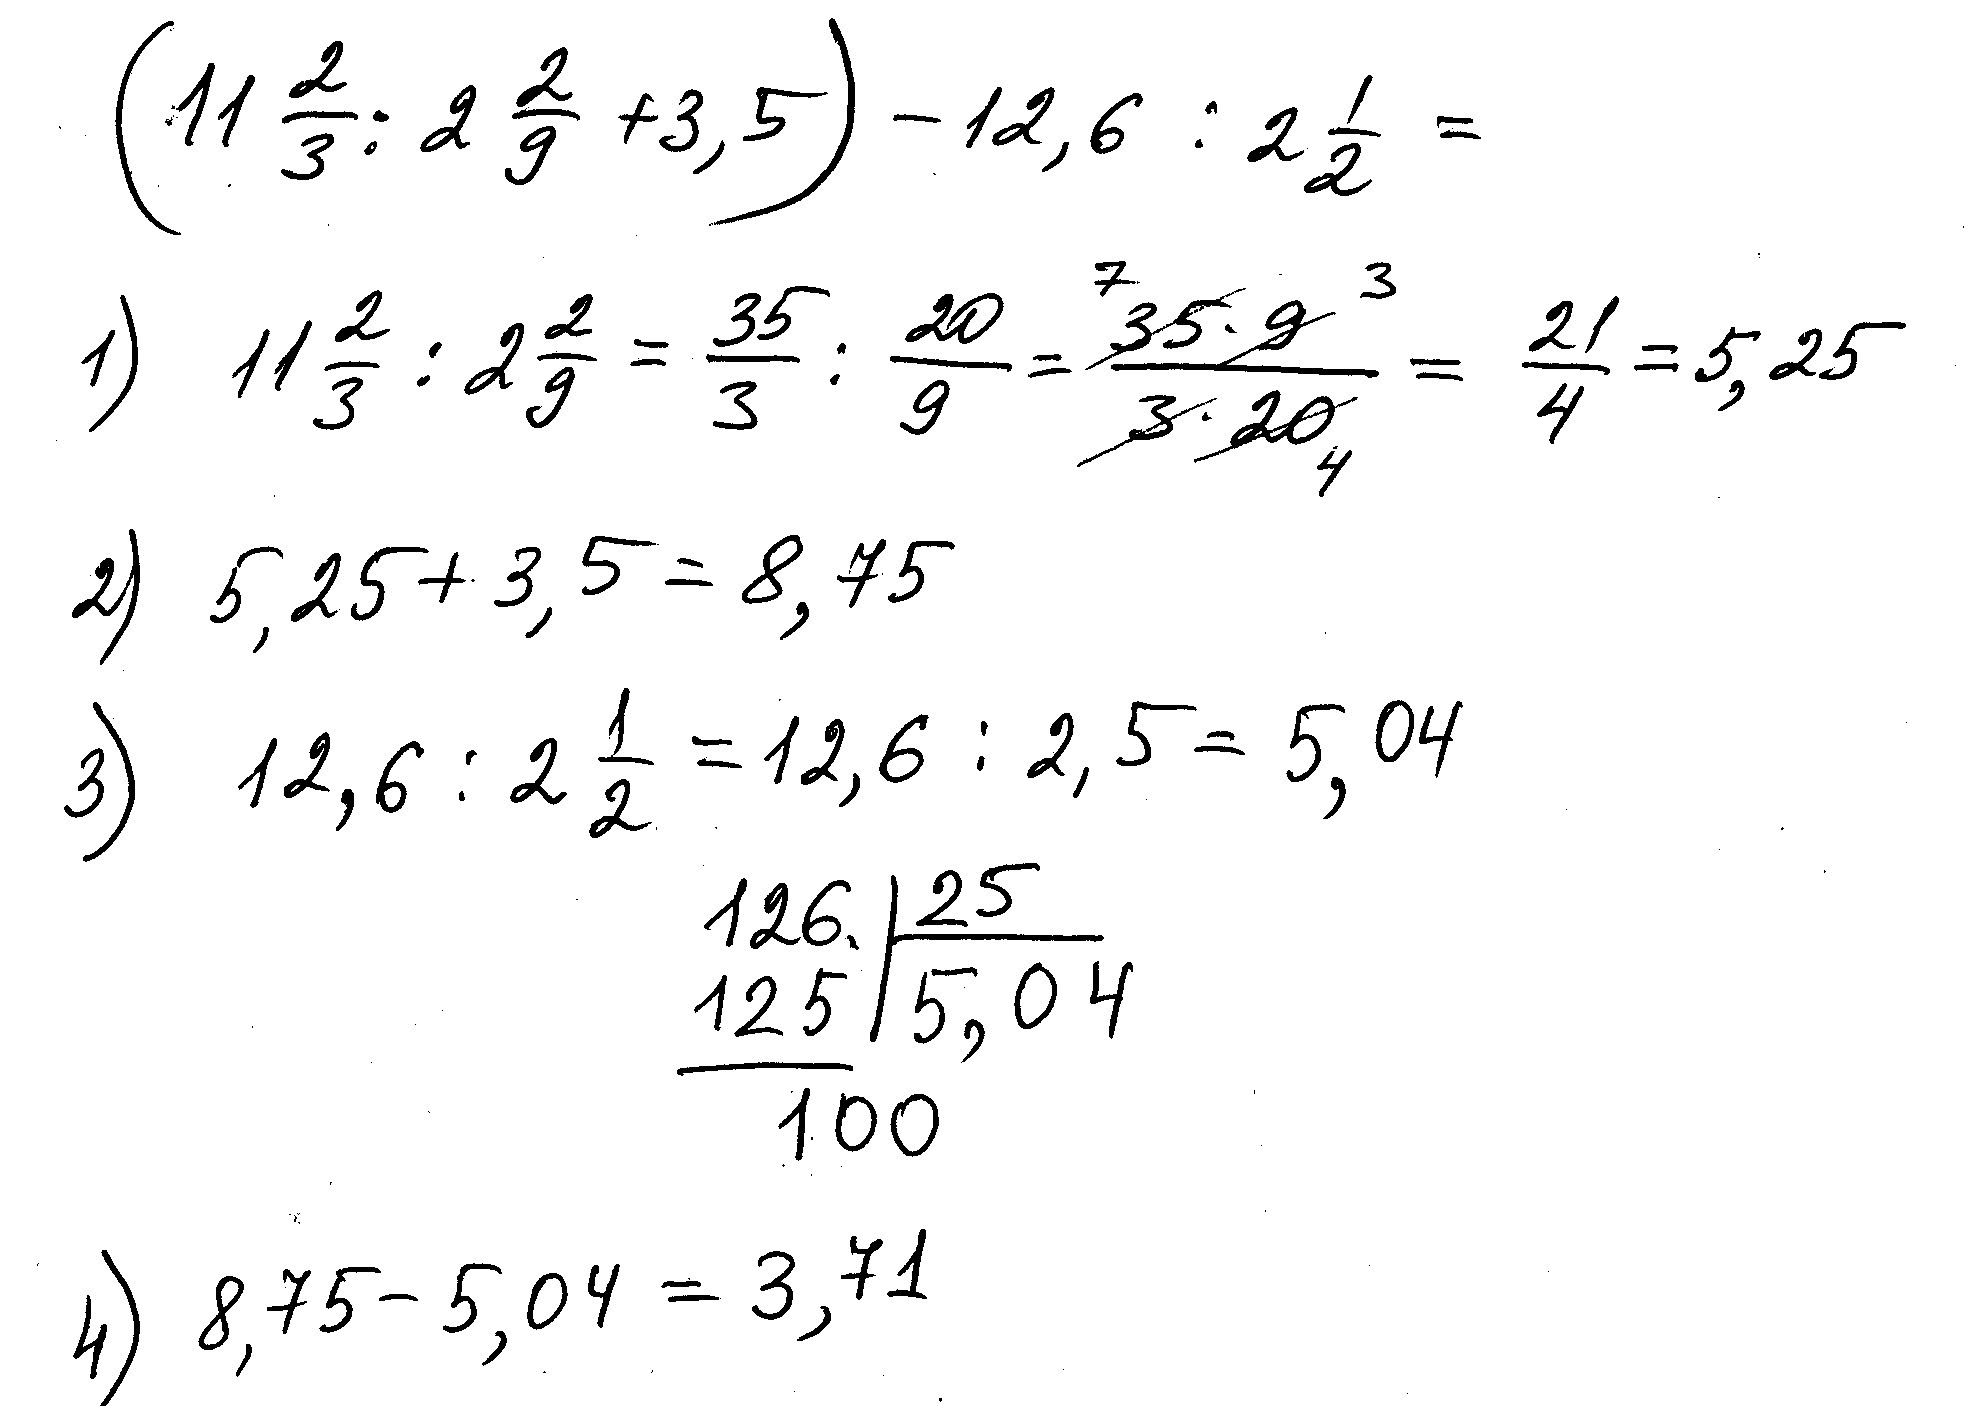 (11 2/3 : 2 2/9 + 3,5) - 12,6 : 2 1/2 =
1) 11 2/3 : 2 2/9 = 35/3 : 20/9 = 35·9/3·20 = 21/4 = 5,25
7 3
4
2) 5,25 + 3,5 = 8,75
3) 12,6 : 2 1/2 = 12,6 : 2,5 = 5,04
126 | 25
125 | 5,04
100
4) 8,75 - 5,04 = 3,71